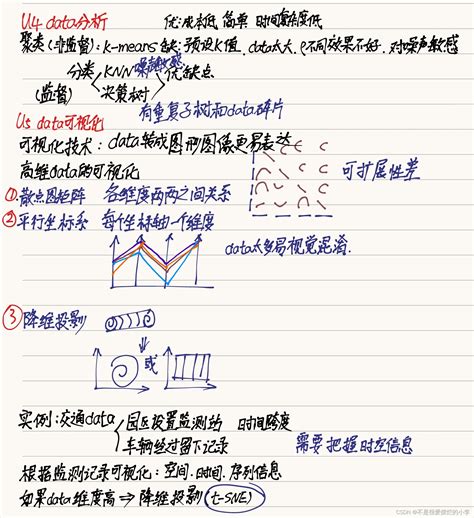 U4 data分析
优:成本低 简单 时间复杂度低
聚类(非监督):k-means 缺:预设K值.data太大.e不同效果不好.对噪声敏感
分类 KNN 噪声敏感 优缺点
(监督) 决策树
有重复子树和data碎片
U5 data可视化
可视化技术:data转成图形图像更易表达
高维data的可视化
①散点图矩阵 各维度两两之间关系
可扩展性差
②平行坐标系 每个坐标轴一个维度
data太多易视觉混淆.
③降维投影
或
实例:交通data 园区设置监测站 时间跨度
车辆经过留下记录 需要把握时空信息
根据监测记录可视化:空间.时间.序列信息
如果data维度高⇒降维投影(t-SNE)
CSDN @不是很爱做饭的小李